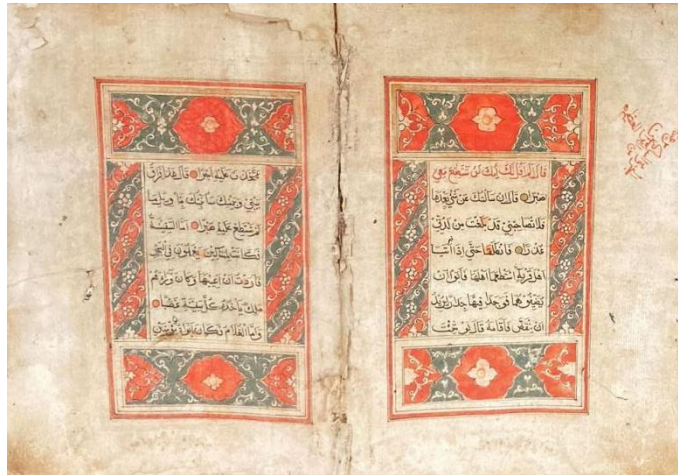 قَالَ اَلَمْ اَقُلْ لَكَ اِنَّكَ لَنْ تَسْتَطِيعَ مَعِيَ
صَبْرًا قَالَ اِنْ سَاَلْتُكَ عَنْ شَيْءٍ بَعْدَهَا
فَلَا تُصَاحِبْنِي قَدْ بَلَغْتَ مِنْ لَدُنِّي
عُذْرًا فَانْطَلَقَا حَتَّى اِذَا اَتَيَا
اَهْلَ قَرْيَةٍ اسْتَطْعَمَا اَهْلَهَا فَاَبَوْا اَنْ
يُضَيِّفُوهُمَا فَوَجَدَا فِيهَا جِدَارًا يُرِيدُ
اَنْ يَنْقَضَّ فَاَقَامَهُ قَالَ لَوْ شِئْتَ
لَتَّخَذْتَ عَلَيْهِ اَجْرًا قَالَ هَذَا فِرَاقُ
بَيْنِي وَبَيْنِكَ سَاُنَبِّئُكَ بِتَاْوِيلِ مَا
لَمْ تَسْتَطِعْ عَلَيْهِ صَبْرًا اَمَّا السَّفِينَةُ
فَكَانَتْ لِمَسَاكِينَ يَعْمَلُونَ فِي الْبَحْرِ
فَاَرَدْتُ اَنْ اَعِيبَهَا وَكَانَ وَرَاءَهُمْ
مَلِكٌ يَاْخُذُ كُلَّ سَفِينَةٍ غَصْبًا
وَاَمَّا الْغُلَامُ فَكَانَ اَبَوَاهُ مُؤْمِنَيْنِ